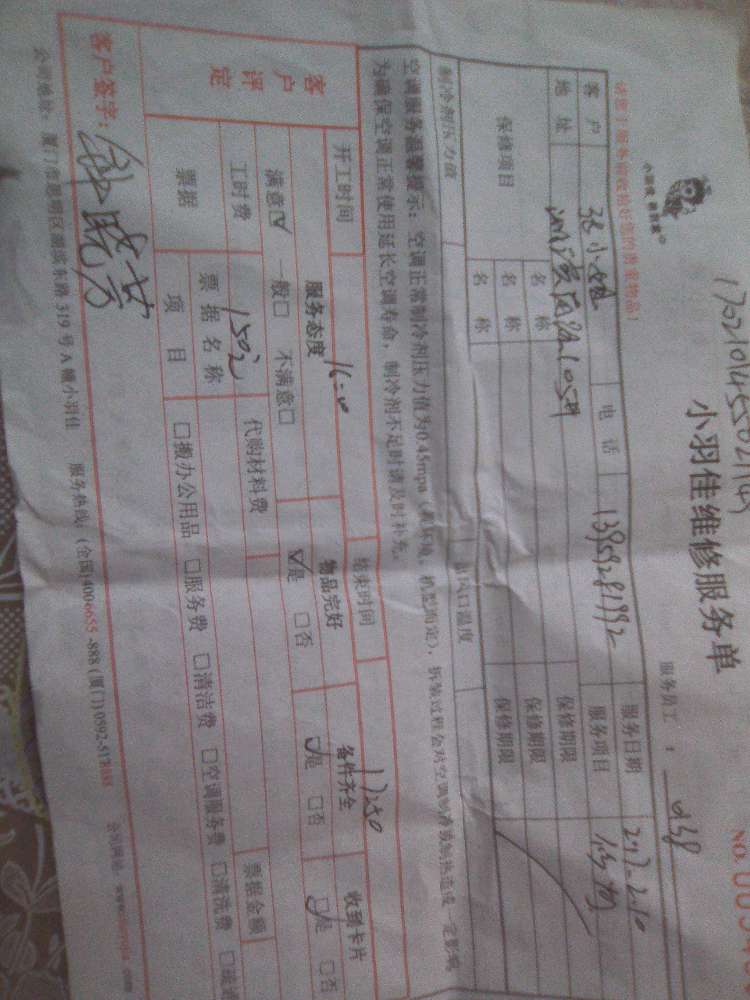 小羽佳维修服务单
NO.
小羽佳 新管家
请您于服务前收拾好您的贵重物品!
服务员工:
客户 张小姐 电话 13959281992 服务日期 2017-2-10
地址 服务项目
保修项目 名称 保修期限
名称 保修期限
名称 保修期限
制冷剂压力值 出风口温度
空调服务温馨提示:空调正常制冷剂压力值为0.45mpa(视环境、机型而定),拆装过程会对空调制冷或制热造成一定影响
为确保空调正常使用延长空调寿命,制冷剂不足时请及时补充。
开工时间 16:00 结束时间 17:50
客户评定
服务态度 物品完好 备件齐全 收到卡片
满意☑ 一般□ 不满意□ ☑是 □否 ☑是 □否 ☑是 □否
工时费 150元 代购材料费
票据 票据名称 票据金额
项目 □搬办公用品 □服务费 □清洁费 □空调服务费 □清洗费
客户签字:
公司地址:厦门市思明区湖滨东路319号A幢小羽佳 服务热线:(全国)4006655-888(厦门)0592-5178
公司网址:www.